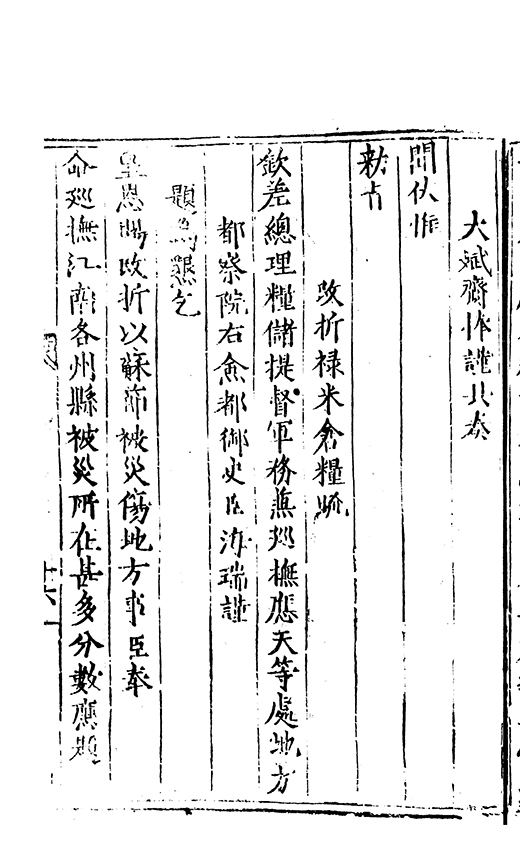 大斌齎捧謹具奏
聞伏惟
敕旨
改折祿米倉糧疏
欽差總理糧儲提督軍務兼巡撫應天等處地方
都察院右僉都御史臣海瑞謹
題為懇乞
皇恩賜改折以蘇節被災傷地方事臣奉
命巡撫江南各州縣被災所在甚多分數應題
十六